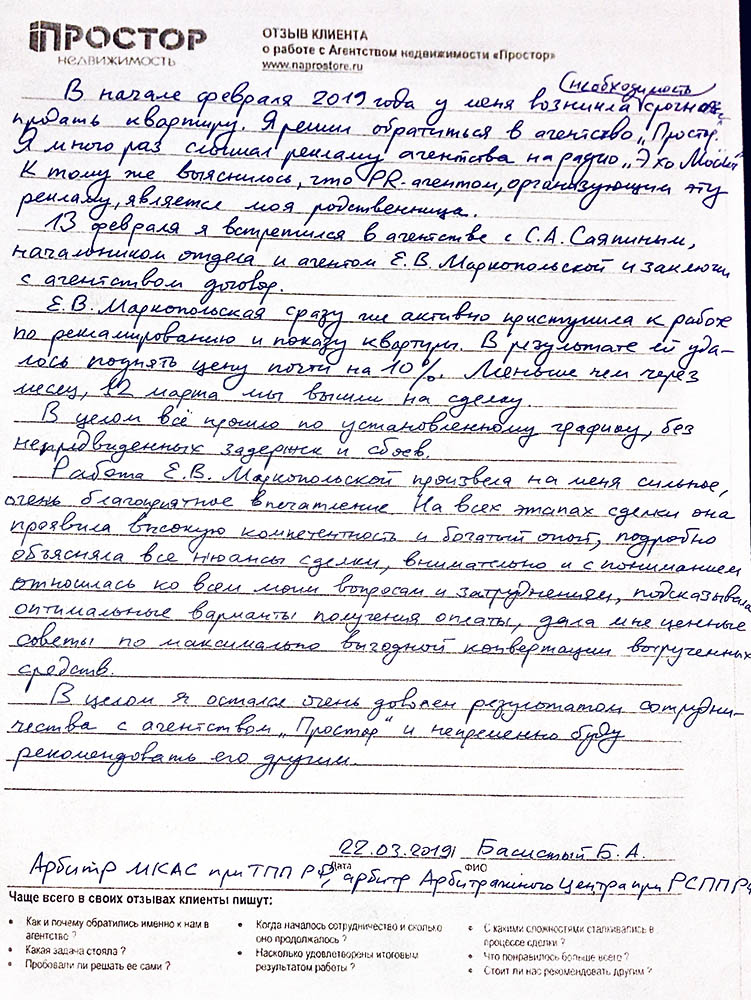 ПРОСТОР
НЕДВИЖИМОСТЬ
ОТЗЫВ КЛИЕНТА
о работе с Агентством недвижимости «Простор»
www.naprostore.ru
необходимость
В начале февраля 2019 года у меня возникла срочная
продать квартиру. Я решил обратиться в агентство „Простор.
Я много раз слышал рекламу агентства на радио „Эхо Москвы"
К тому же выяснилось, что PR-агентом, организующим эту
рекламу, является моя родственница.
13 февраля я встретился в агентстве с С.А. Саяпиным,
начальником отдела и агентом Е.В. Маркопольской и заключил
с агентством договор.
Е.В. Маркопольская сразу же активно приступила к работе
по рекламированию и показу квартиры. В результате ей уда-
лось поднять цену почти на 10%. Меньше чем через
месяц, 12 марта мы вышли на сделку.
В целом всё прошло по установленному графику, без
непредвиденных задержек и сбоев.
Работа Е.В. Маркопольской произвела на меня сильное,
очень благоприятное впечатление. На всех этапах сделки она
проявила высокую компетентность и богатый опыт, подробно
объясняла все нюансы сделки, внимательно и с пониманием
относилась ко всем моим вопросам и затруднениям, подсказывала
оптимальные варианты получения оплаты, дала мне ценные
советы по максимально выгодной конвертации вырученных
средств.
В целом я остался очень доволен результатом сотрудни-
чества с агентством „Простор" и непременно буду
рекомендовать его другим.
22.03.2019 Басистый Б.А.
Дата ФИО
Арбитр МКАС при ТПП РФ, арбитр Арбитражного Центра при РСПП РФ
Чаще всего в своих отзывах клиенты пишут:
• Как и почему обратились именно к нам в
агентство ?
• Какая задача стояла ?
• Пробовали ли решать ее сами ?
• Когда началось сотрудничество и сколько
оно продолжалось ?
• Насколько удовлетворены итоговым
результатом работы ?
• С какими сложностями сталкивались в
процессе сделки ?
• Что понравилось больше всего ?
• Стоит ли нас рекомендовать другим ?